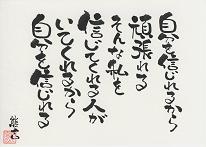 自分を信じれるから
頑張れる
そんな私を
信じてくれる人が
いてくれるから
自分を信じれる